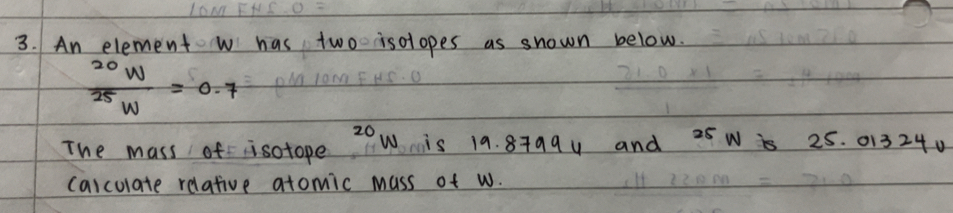 3. An element W has two isotopes as shown below.
20 W
25 W = 0.7
The mass of isotope 20 W is 19.8799 u and 25 W is 25.01324 u
Calculate relative atomic mass of W.